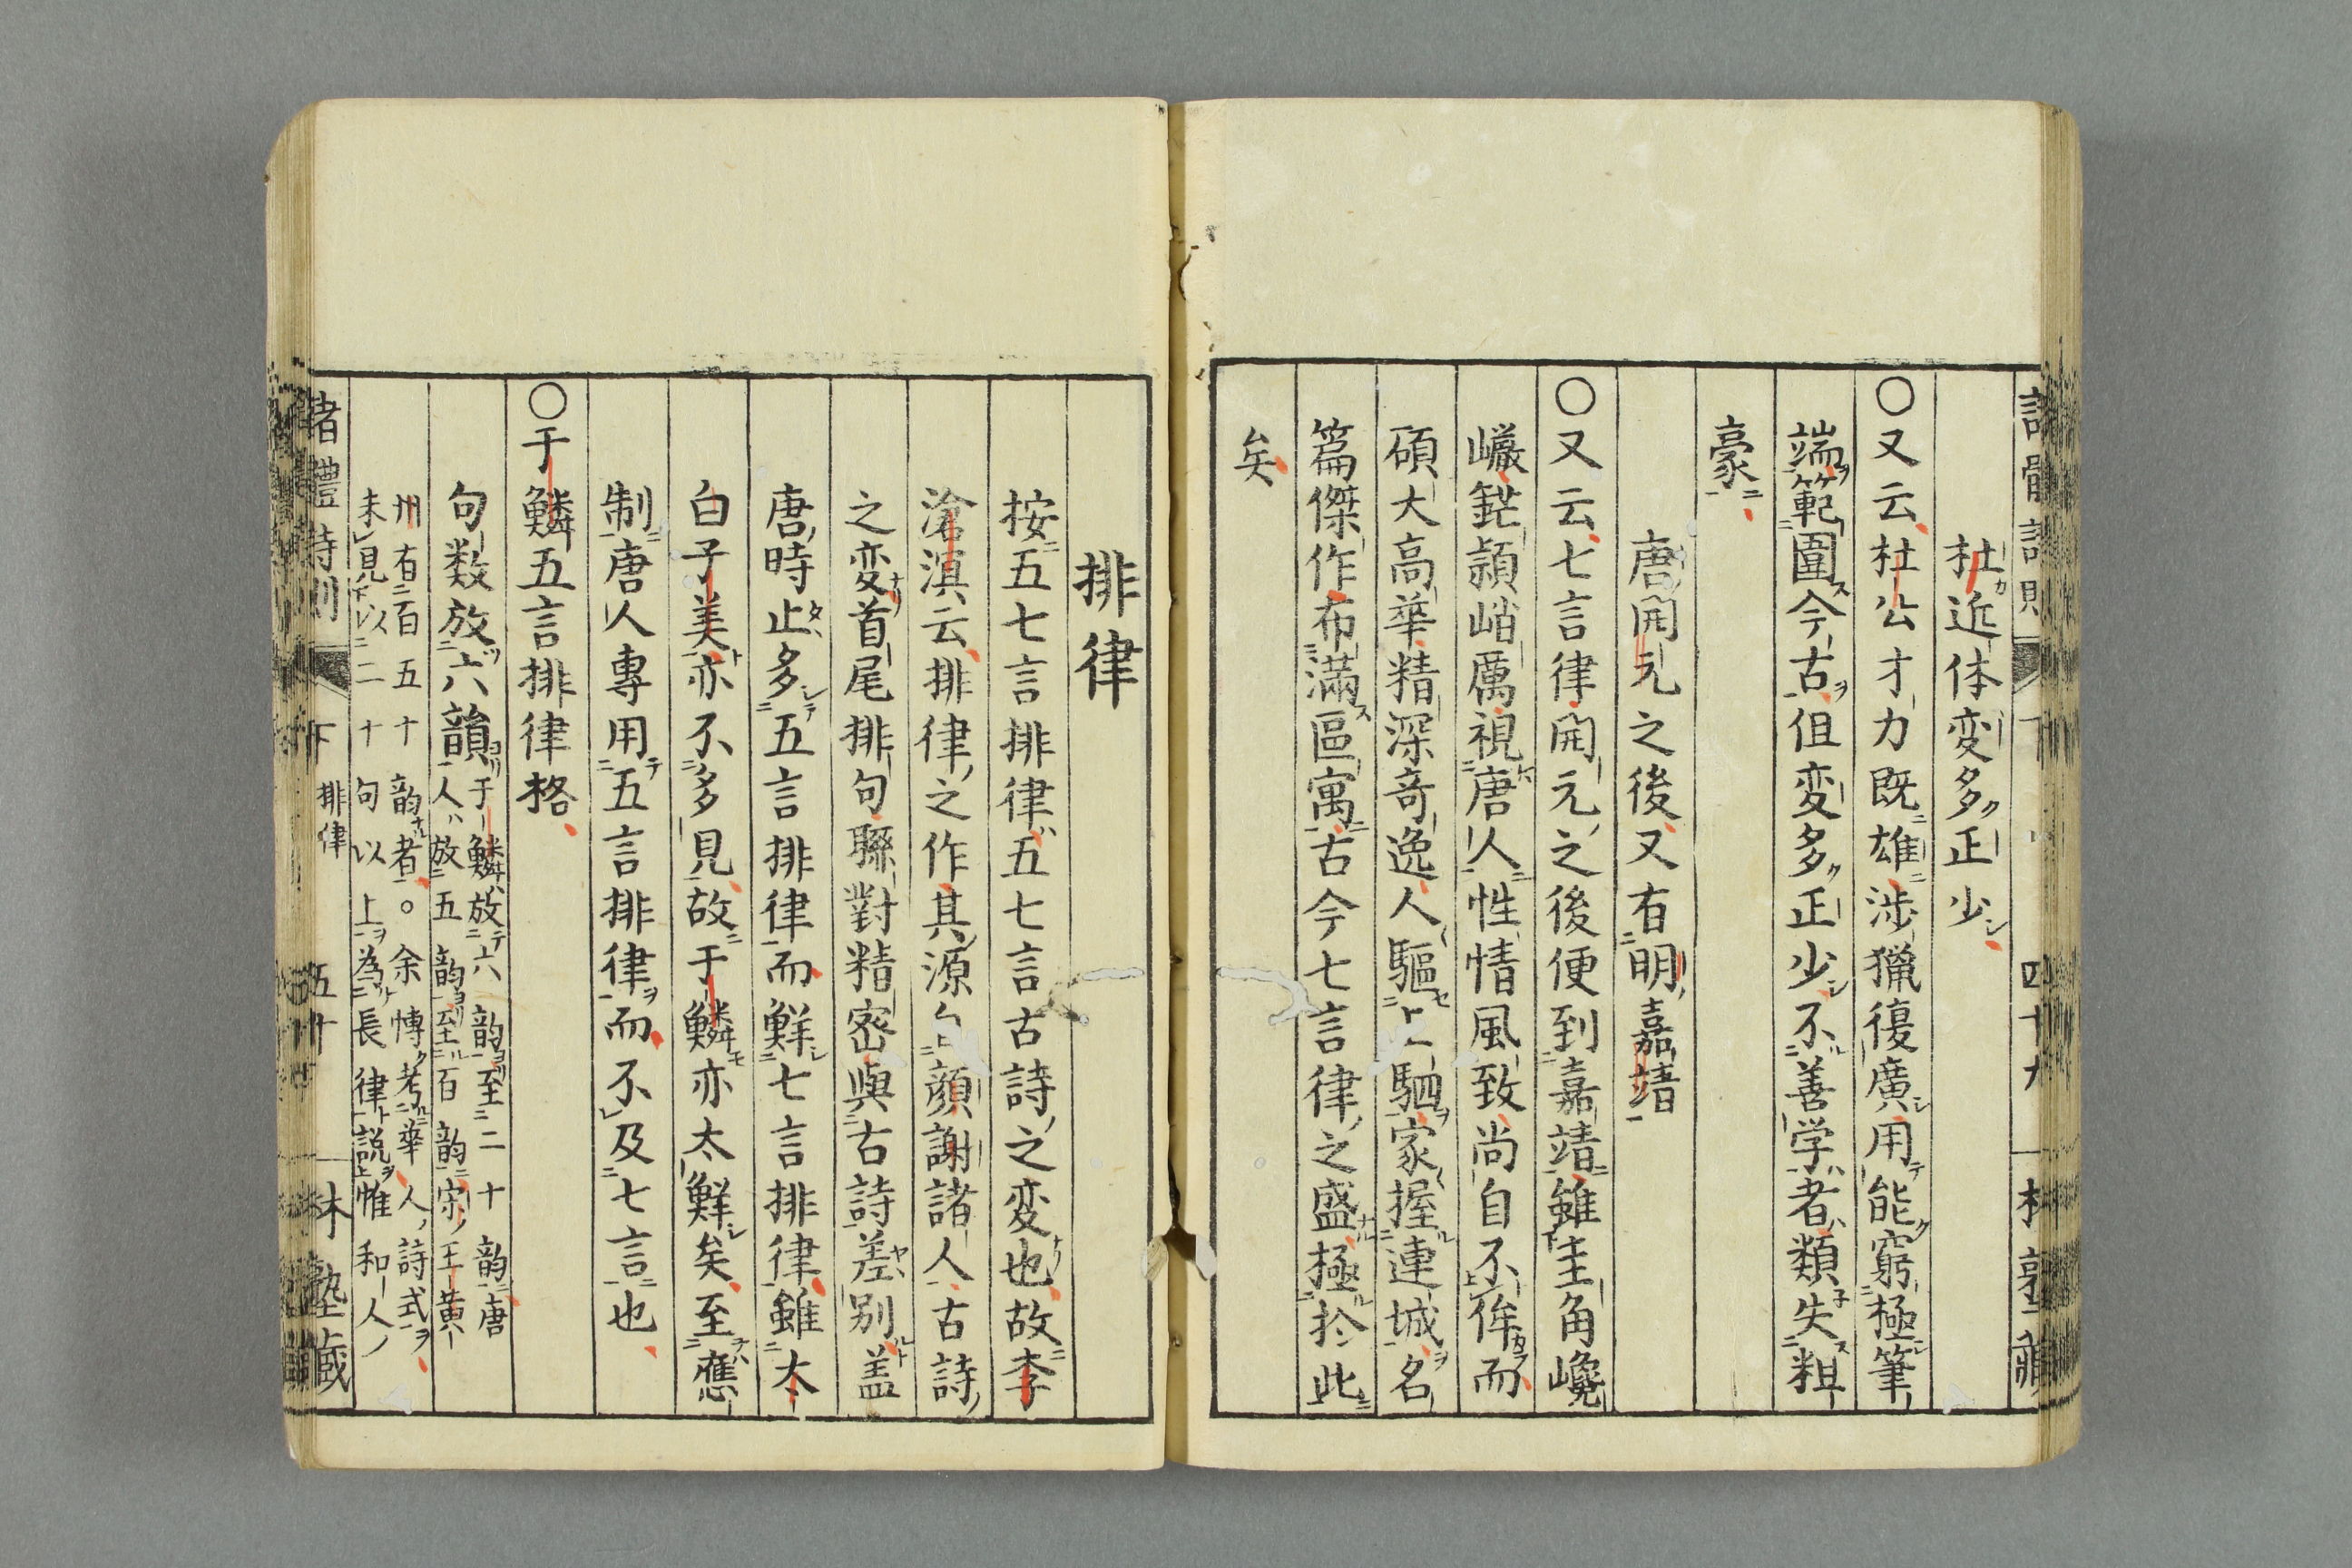 杜近体変多正少
○又云杜公才力既雄渉獵復廣用能窮極筆
端範圍今古但変多正少不善学者類失粗
豪
唐開元之後又有明嘉靖
○又云七言律開元之後便到嘉靖雖圭角巉
巗鋩頴峭厲視唐人性情風致尚自不侔而
碩大高華精深奇逸人驅上駟家握連城名
篇傑作布滿區寓古今七言律之盛極於此
矣
排律
按五七言排律五七言古詩之変也故李
滄溟云排律之作其源自顔謝諸人古詩
之変首尾排句聯對精密與古詩差别盖
唐時止多五言排律而鮮七言排律雖太
白子美亦不多見故于鱗亦太鮮矣至應
制唐人專用五言排律而不及七言也
○于鱗五言排律格
句数放六韻于鱗放六韵至二十韵唐
人放五韵至百韵宋王黄
州有百五十韵者○余博考華人詩式
未見以二十句以上為長律説惟和人
諸體詩則 下 排律 五十 林塾蔵